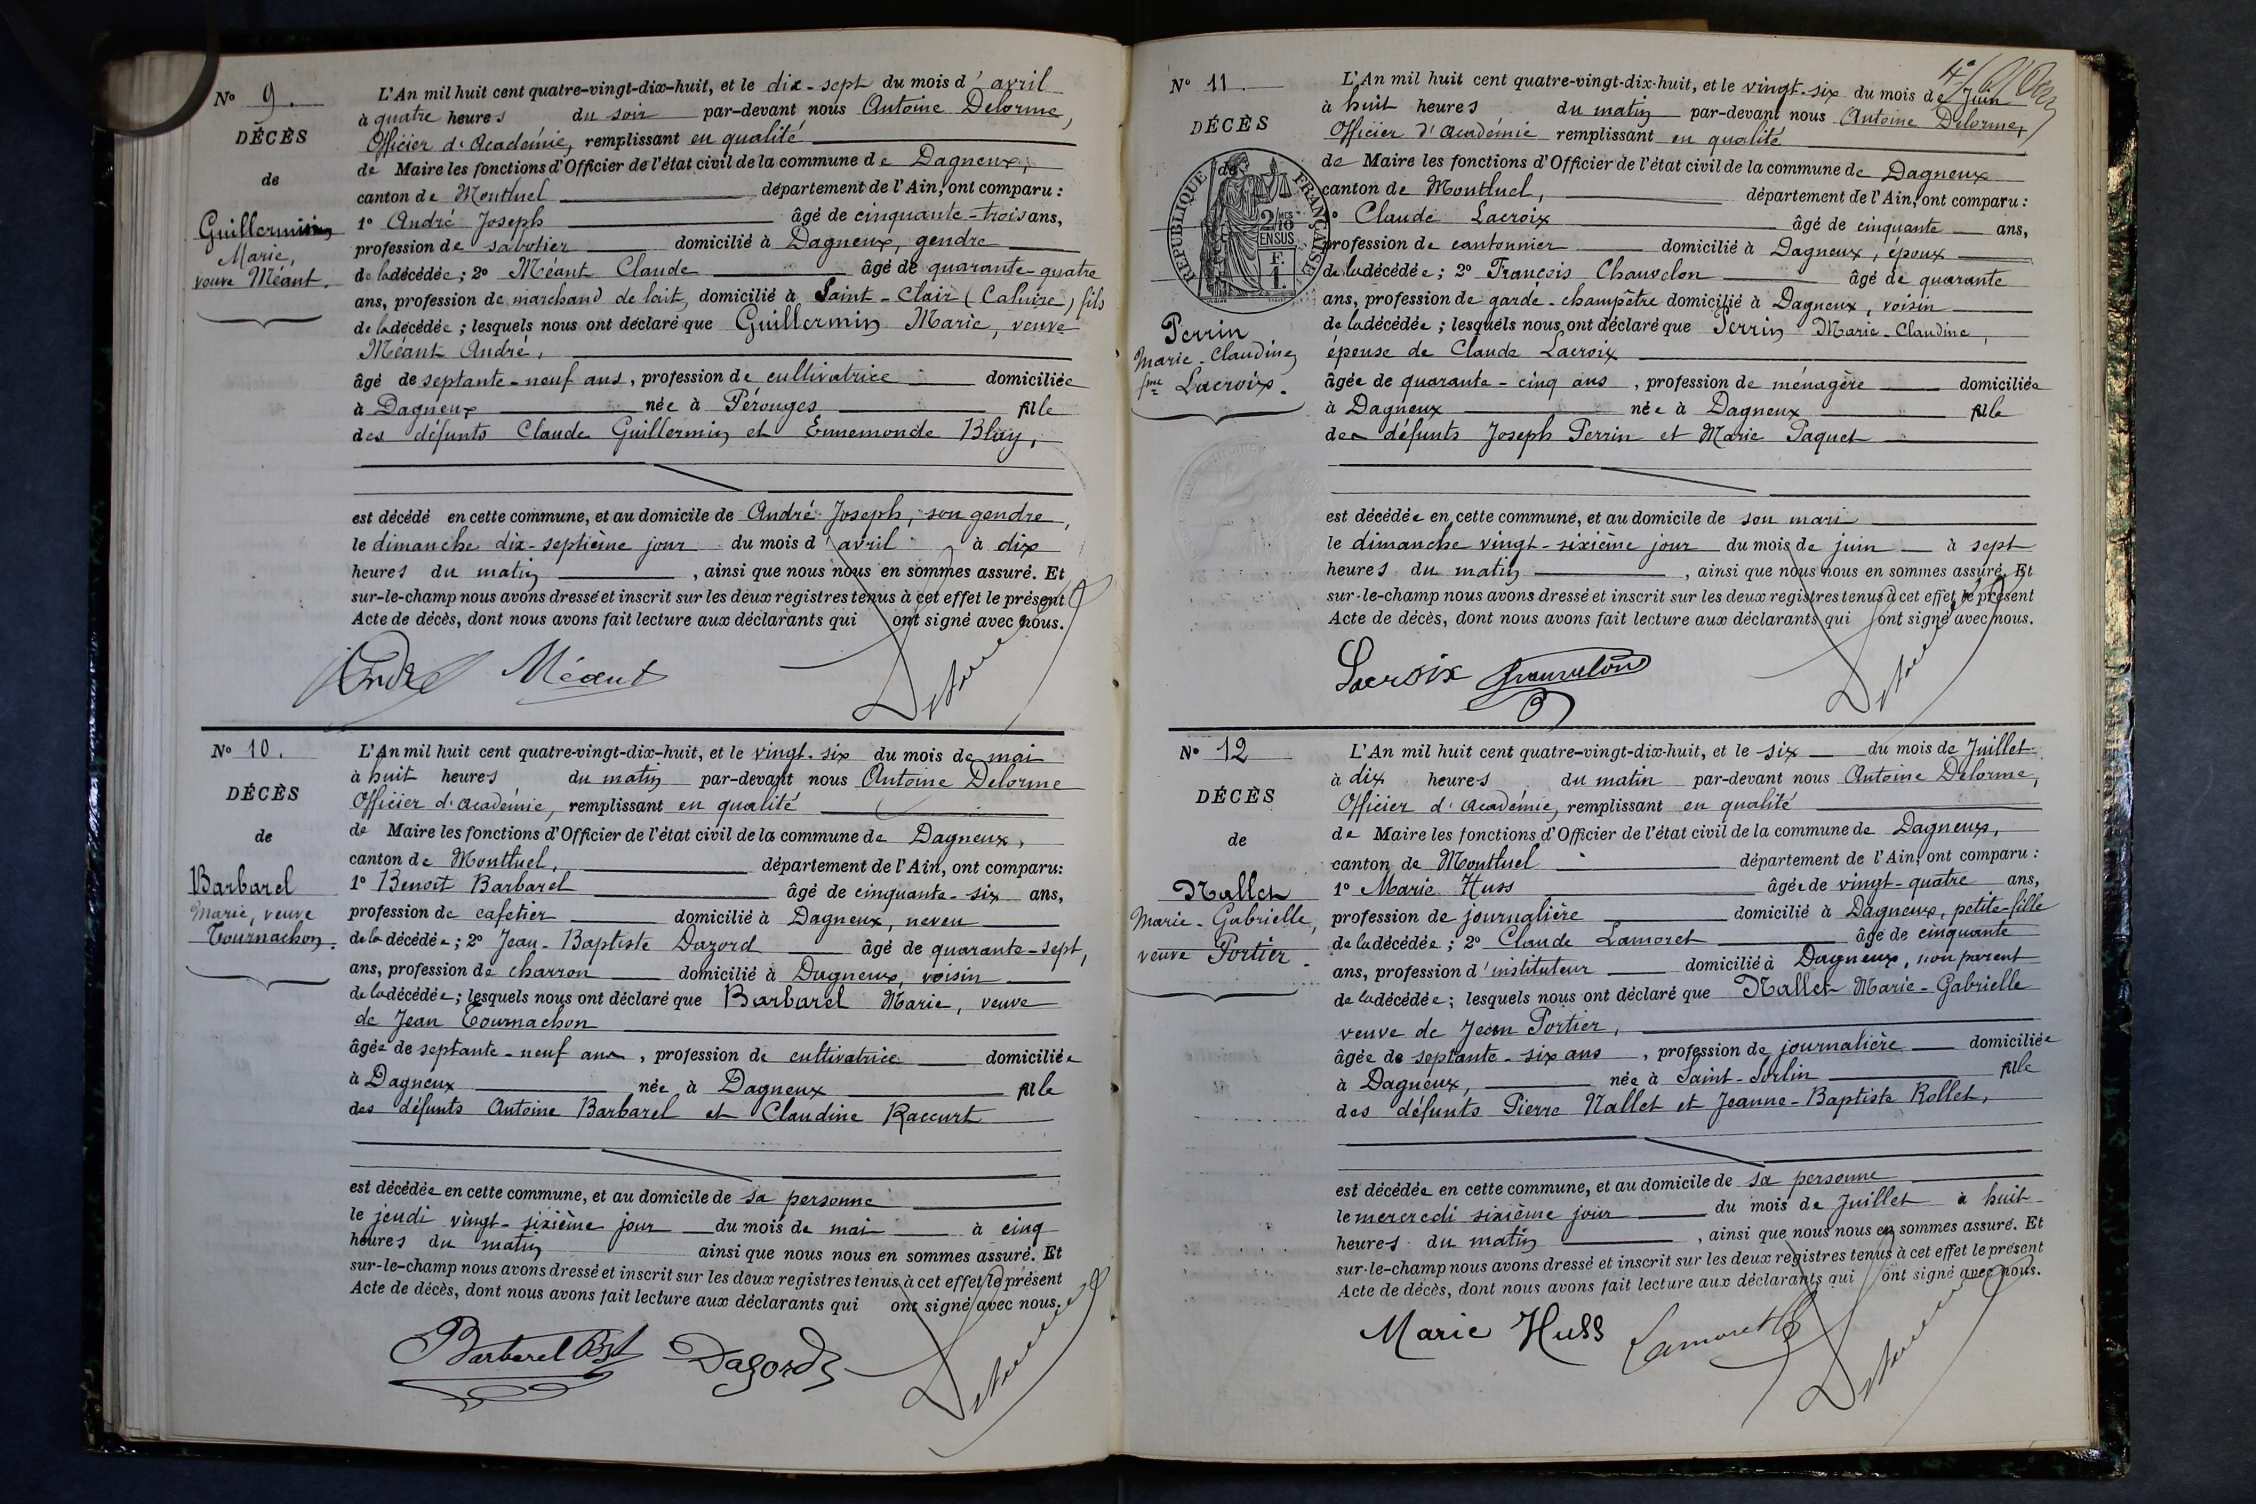 No 9.
DÉCÈS
de
Guillermin
Marie,
veuve Méant.
L'An mil huit cent quatre-vingt-dix-huit, et le dix-sept du mois d'avril
à quatre heures du soir par-devant nous Antoine Delorme,
Officier d'Académie, remplissant en qualité
de Maire les fonctions d'Officier de l'état civil de la commune de Dagneux,
canton de Montluel département de l'Ain, ont comparu :
1o André Joseph âgé de cinquante-trois ans,
profession de sabotier domicilié à Dagneux, gendre
de la décédée ; 2o Méant Claude âgé de quarante-quatre
ans, profession de marchand de lait, domicilié à Saint-Clair (Caluire) fils
de la décédée ; lesquels nous ont déclaré que Guillermin Marie, veuve
Méant André,
âgé de septante-neuf ans, profession de cultivatrice domiciliée
à Dagneux née à Pérouges fille
des défunts Claude Guillermin et Ennemonde Blay,
est décédé en cette commune, et au domicile de André Joseph, son gendre,
le dimanche dix-septième jour du mois d'avril à dix
heures du matin, ainsi que nous nous en sommes assuré. Et
sur-le-champ nous avons dressé et inscrit sur les deux registres tenus à cet effet le présent
Acte de décès, dont nous avons fait lecture aux déclarants qui ont signé avec nous.
André Méant Delorme
No 10.
DÉCÈS
de
Barbarel
Marie, veuve
Tournachon.
L'An mil huit cent quatre-vingt-dix-huit, et le vingt-six du mois de mai
à huit heures du matin par-devant nous Antoine Delorme
Officier d'Académie, remplissant en qualité
de Maire les fonctions d'Officier de l'état civil de la commune de Dagneux,
canton de Montluel, département de l'Ain, ont comparu:
1o Benoît Barbarel âgé de cinquante-six ans,
profession de cafetier domicilié à Dagneux, neveu
de la décédée ; 2o Jean-Baptiste Dazord âgé de quarante-sept,
ans, profession de charron domicilié à Dagneux, voisin
de la décédée ; lesquels nous ont déclaré que Barbarel Marie, veuve
de Jean Tournachon
âgée de septante-neuf ans, profession de cultivatrice domiciliée
à Dagneux née à Dagneux fille
des défunts Antoine Barbarel et Claudine Raccurt
est décédée en cette commune, et au domicile de sa personne
le jeudi vingt-sixième jour du mois de mai à cinq
heures du matin ainsi que nous nous en sommes assuré. Et
sur-le-champ nous avons dressé et inscrit sur les deux registres tenus à cet effet le présent
Acte de décès, dont nous avons fait lecture aux déclarants qui ont signé avec nous.
Barbarel Bt Dazord Delorme
4e
No 11
DÉCÈS
de
RÉPUBLIQUE FRANÇAISE
2/10MES
EN SUS
F.
1.
Perrin
Marie-Claudine
fme Lacroix.
L'An mil huit cent quatre-vingt-dix-huit, et le vingt-six du mois de Juin
à huit heures du matin par-devant nous Antoine Delorme,
Officier d'Académie remplissant en qualité
de Maire les fonctions d'Officier de l'état civil de la commune de Dagneux
canton de Montluel, département de l'Ain, ont comparu :
1o Claude Lacroix âgé de cinquante ans,
profession de cantonnier domicilié à Dagneux, époux
de la décédée ; 2o François Chauvelon âgé de quarante
ans, profession de garde-champêtre domicilié à Dagneux, voisin
de la décédée ; lesquels nous ont déclaré que Perrin Marie-Claudine,
épouse de Claude Lacroix
âgée de quarante-cinq ans, profession de ménagère domiciliée
à Dagneux née à Dagneux fille
des défunts Joseph Perrin et Marie Paquet
est décédée en cette commune, et au domicile de son mari
le dimanche vingt-sixième jour du mois de juin à sept
heures du matin, ainsi que nous nous en sommes assuré. Et
sur-le-champ nous avons dressé et inscrit sur les deux registres tenus à cet effet le présent
Acte de décès, dont nous avons fait lecture aux déclarants qui ont signé avec nous.
Lacroix Chauvelon Delorme
No 12
DÉCÈS
de
Nallet
Marie-Gabrielle,
veuve Portier.
L'An mil huit cent quatre-vingt-dix-huit, et le six du mois de Juillet
à dix heures du matin par-devant nous Antoine Delorme,
Officier d'Académie, remplissant en qualité
de Maire les fonctions d'Officier de l'état civil de la commune de Dagneux,
canton de Montluel département de l'Ain, ont comparu :
1o Marie Huss âgée de vingt-quatre ans,
profession de journalière domicilié à Dagneux, petite-fille
de la décédée ; 2o Claude Lamoret âgé de cinquante
ans, profession d'instituteur domicilié à Dagneux, non parent
de la décédée ; lesquels nous ont déclaré que Nallet Marie-Gabrielle
veuve de Jean Portier,
âgée de septante-six ans, profession de journalière domiciliée
à Dagneux, née à Saint-Sorlin fille
des défunts Pierre Nallet et Jeanne-Baptiste Rollet,
est décédée en cette commune, et au domicile de sa personne
le mercredi sixième jour du mois de Juillet à huit
heures du matin, ainsi que nous nous en sommes assuré. Et
sur-le-champ nous avons dressé et inscrit sur les deux registres tenus à cet effet le présent
Acte de décès, dont nous avons fait lecture aux déclarants qui ont signé avec nous.
Marie Huss Lamoret Delorme